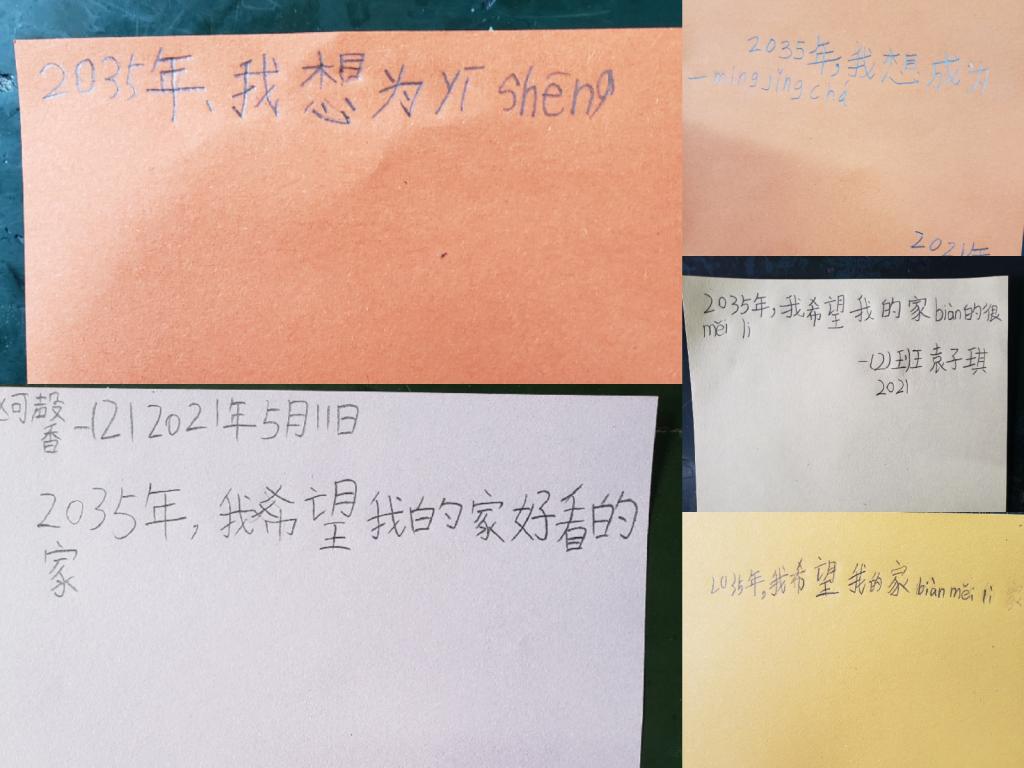 2035年、我想为yī shēng
2035年,我想成为
一míng jǐng chá
2021年
2035年,我希望我的家biàn的很
měi lì
一(2)班袁子琪
2021
馨香一(2)2021年5月11日
2035年,我希望我的家好看的
家
2035年,我希望我的家biàn měi lì